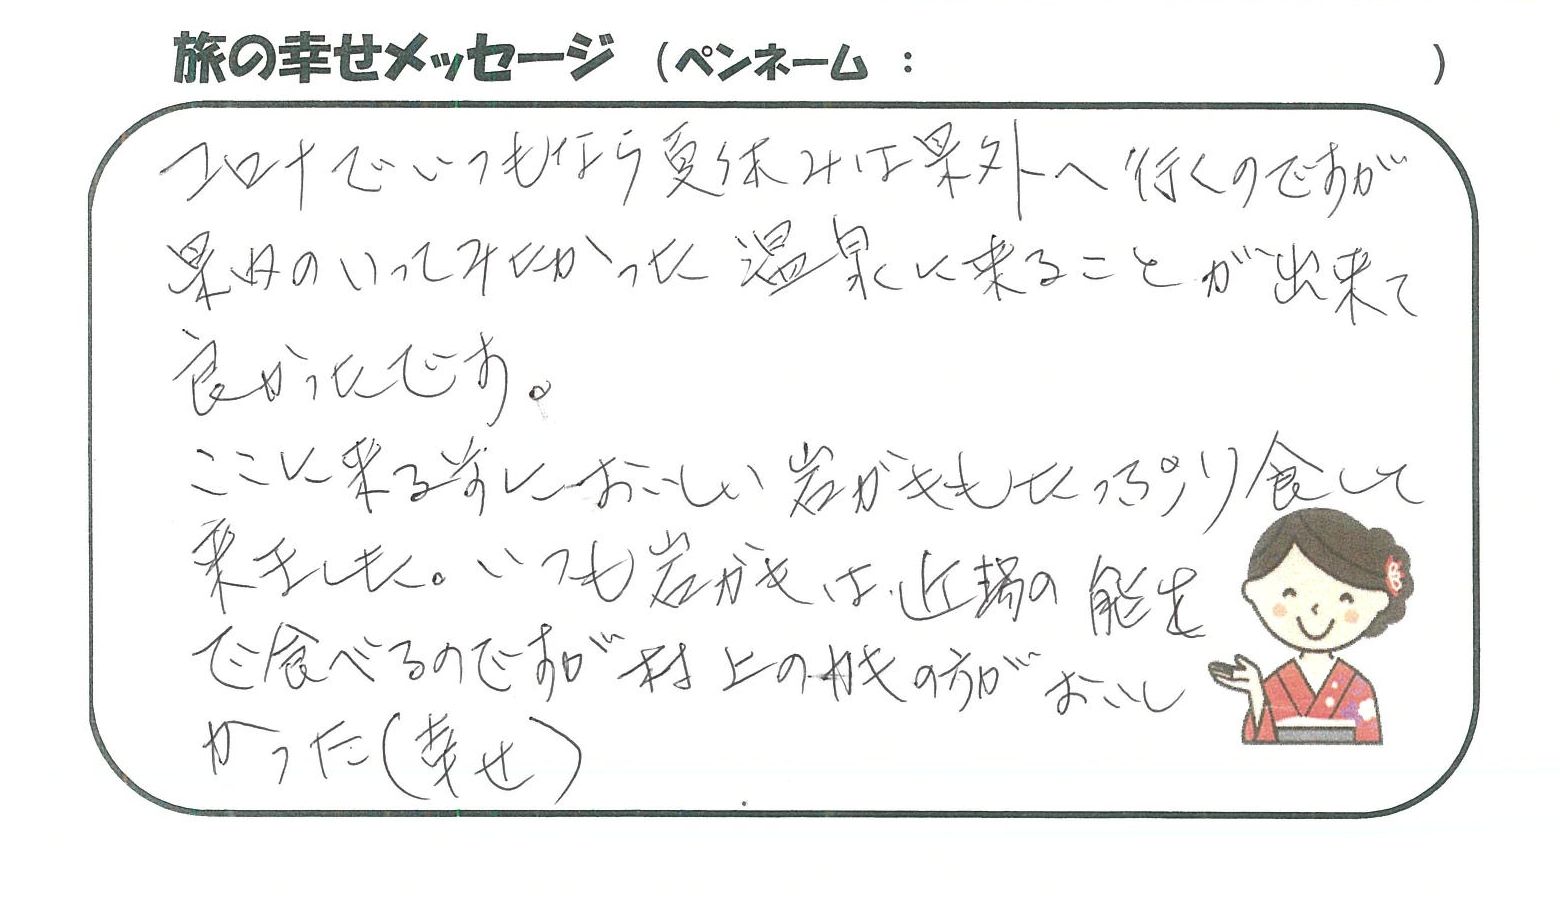 旅の幸せメッセージ (ペンネーム : )
コロナでいつもなら夏休みは県外へ行くのですが
県内のいってみたかった温泉に来ることが出来て
良かったです。
ここに来る前においしい岩がきもたっぷり食して
来ました。いつも岩がきは近場の能生
で食べるのですが村上のカキの方がおいし
かった(幸せ)